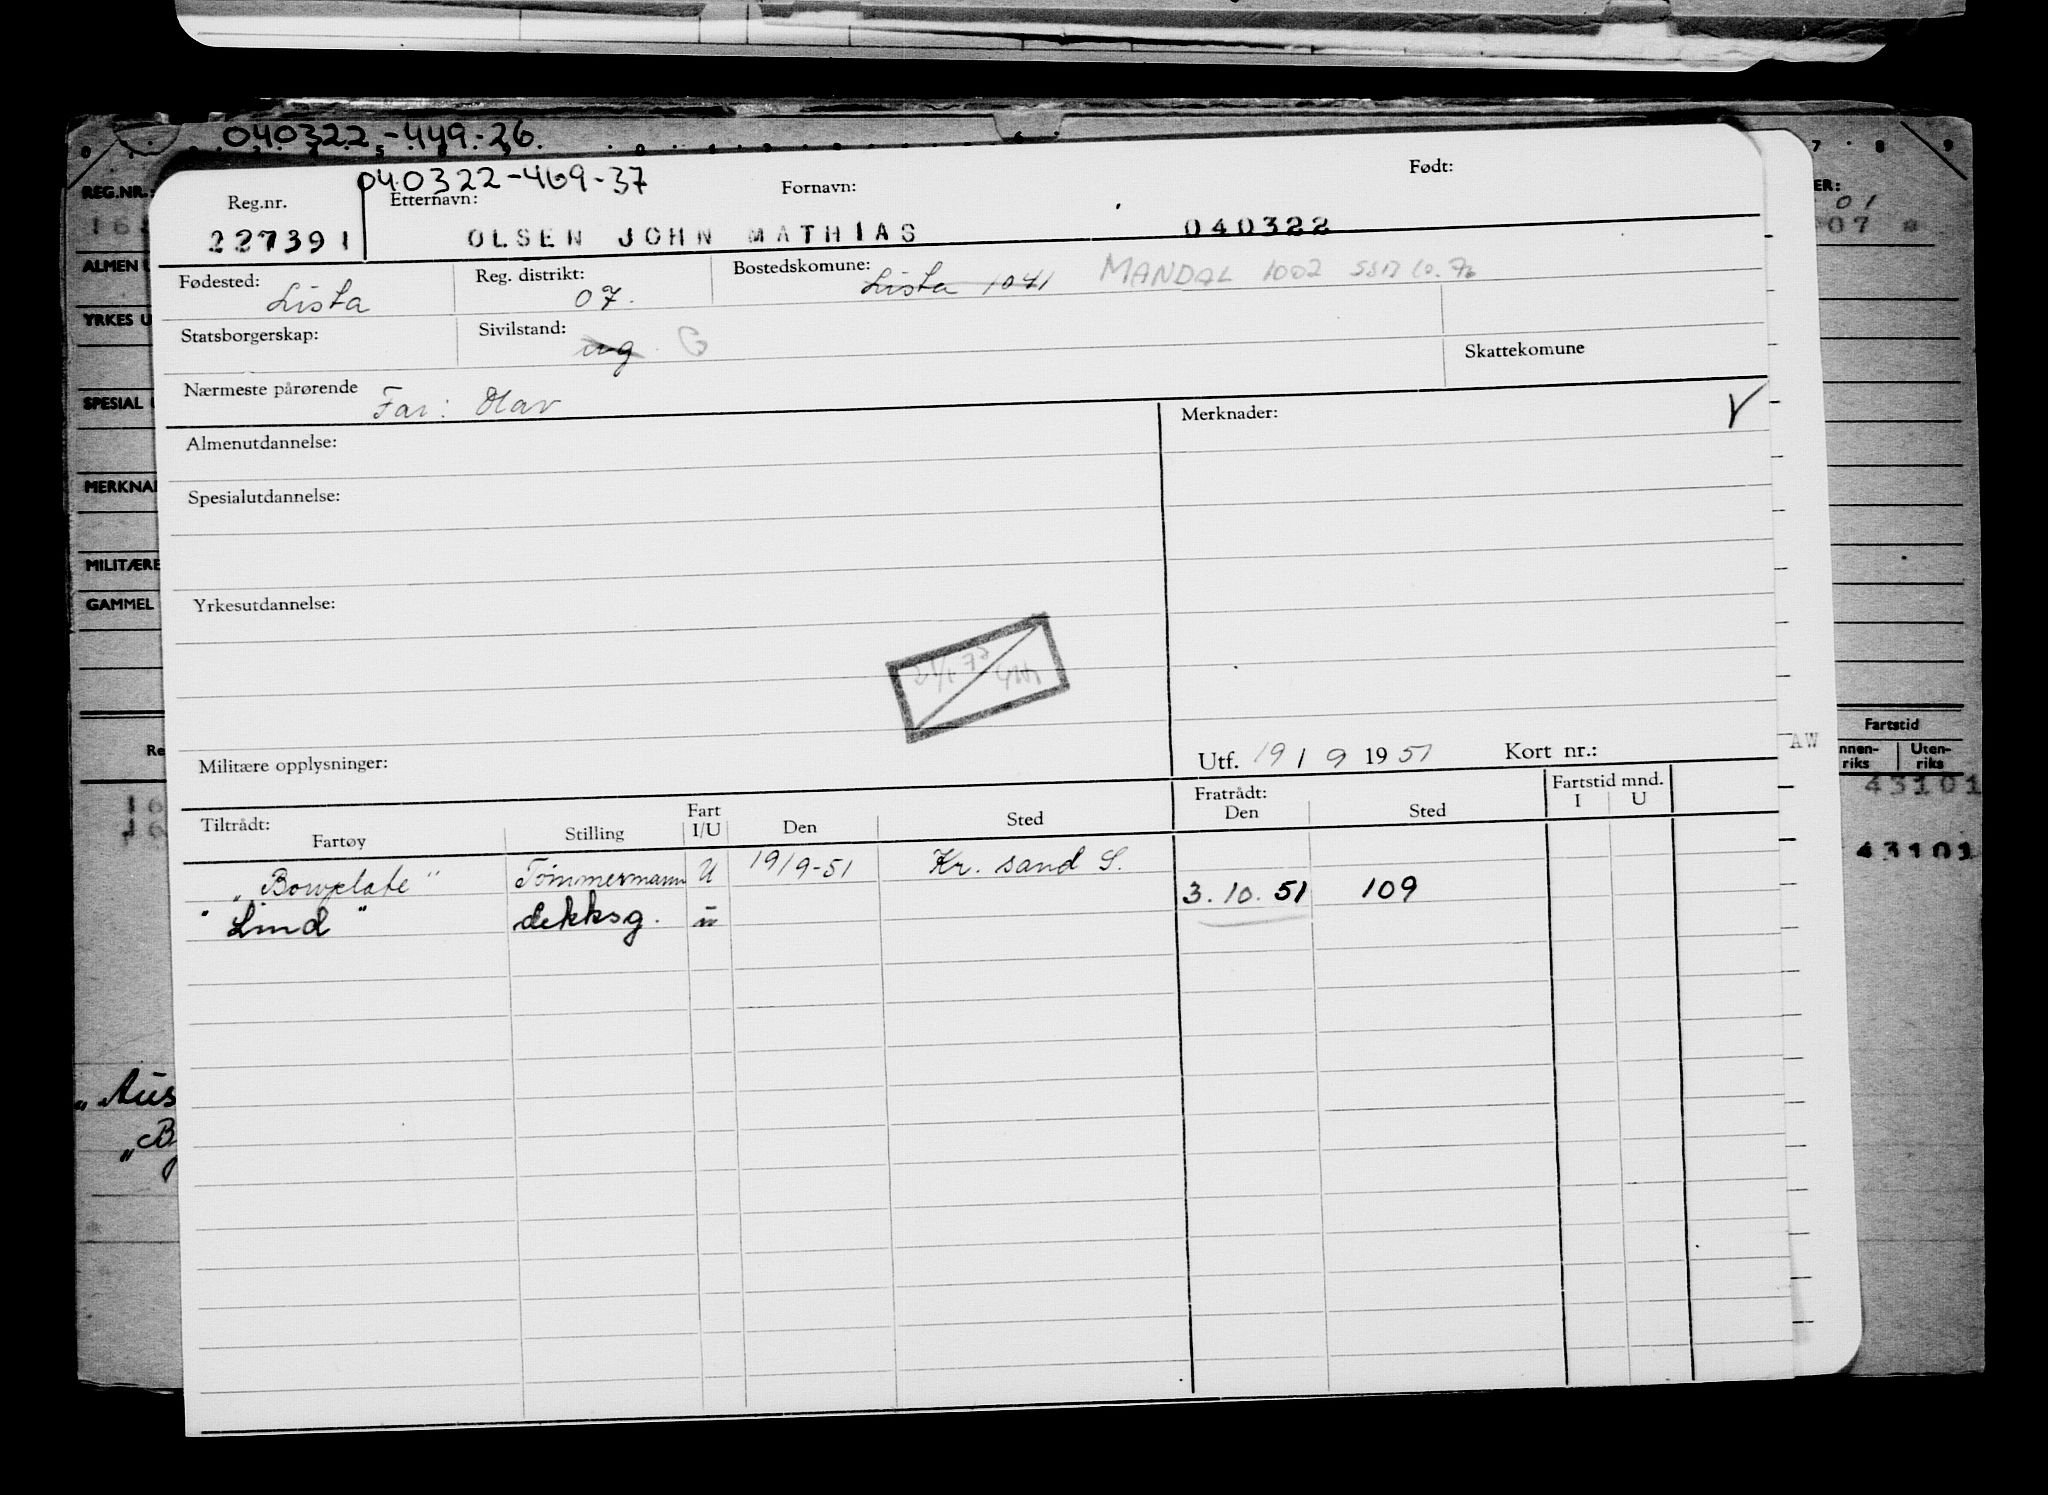 040322-449-26.
REG.NR.:
ALMEN
YRKES U
SPESIAL
MERKNA
MILITÆRE
GAMMEL
7 8 9
ER:
01
07
040322-469-37
Reg.nr. Etternavn: Fornavn: Født:
227391 OLSEN JOHN MATHIAS 040322
Fødested: Lista Reg. distrikt: 07. Bostedskomune: Lista 1041 MANDAL 1002
Statsborgerskap: Sivilstand: ug. G
Skattekomune
Nærmeste pårørende Far: Olav
Almenutdannelse: Merknader:
Spesialutdannelse:
Yrkesutdannelse:
Militære opplysninger: Utf. 19 / 9 1951 Kort nr.:
Tiltrådt: Fartøy Stilling Fart I/U Den Sted Fratrådt: Den Sted Fartstid mnd. I U
„Bowplate" Tømmermann U 19/9-51 Kr. sand S. 3.10.51 109
"Lind" dekksg. u
AW
Fartstid
nnen-riks Uten-riks
43101
43101
„Aus
„B